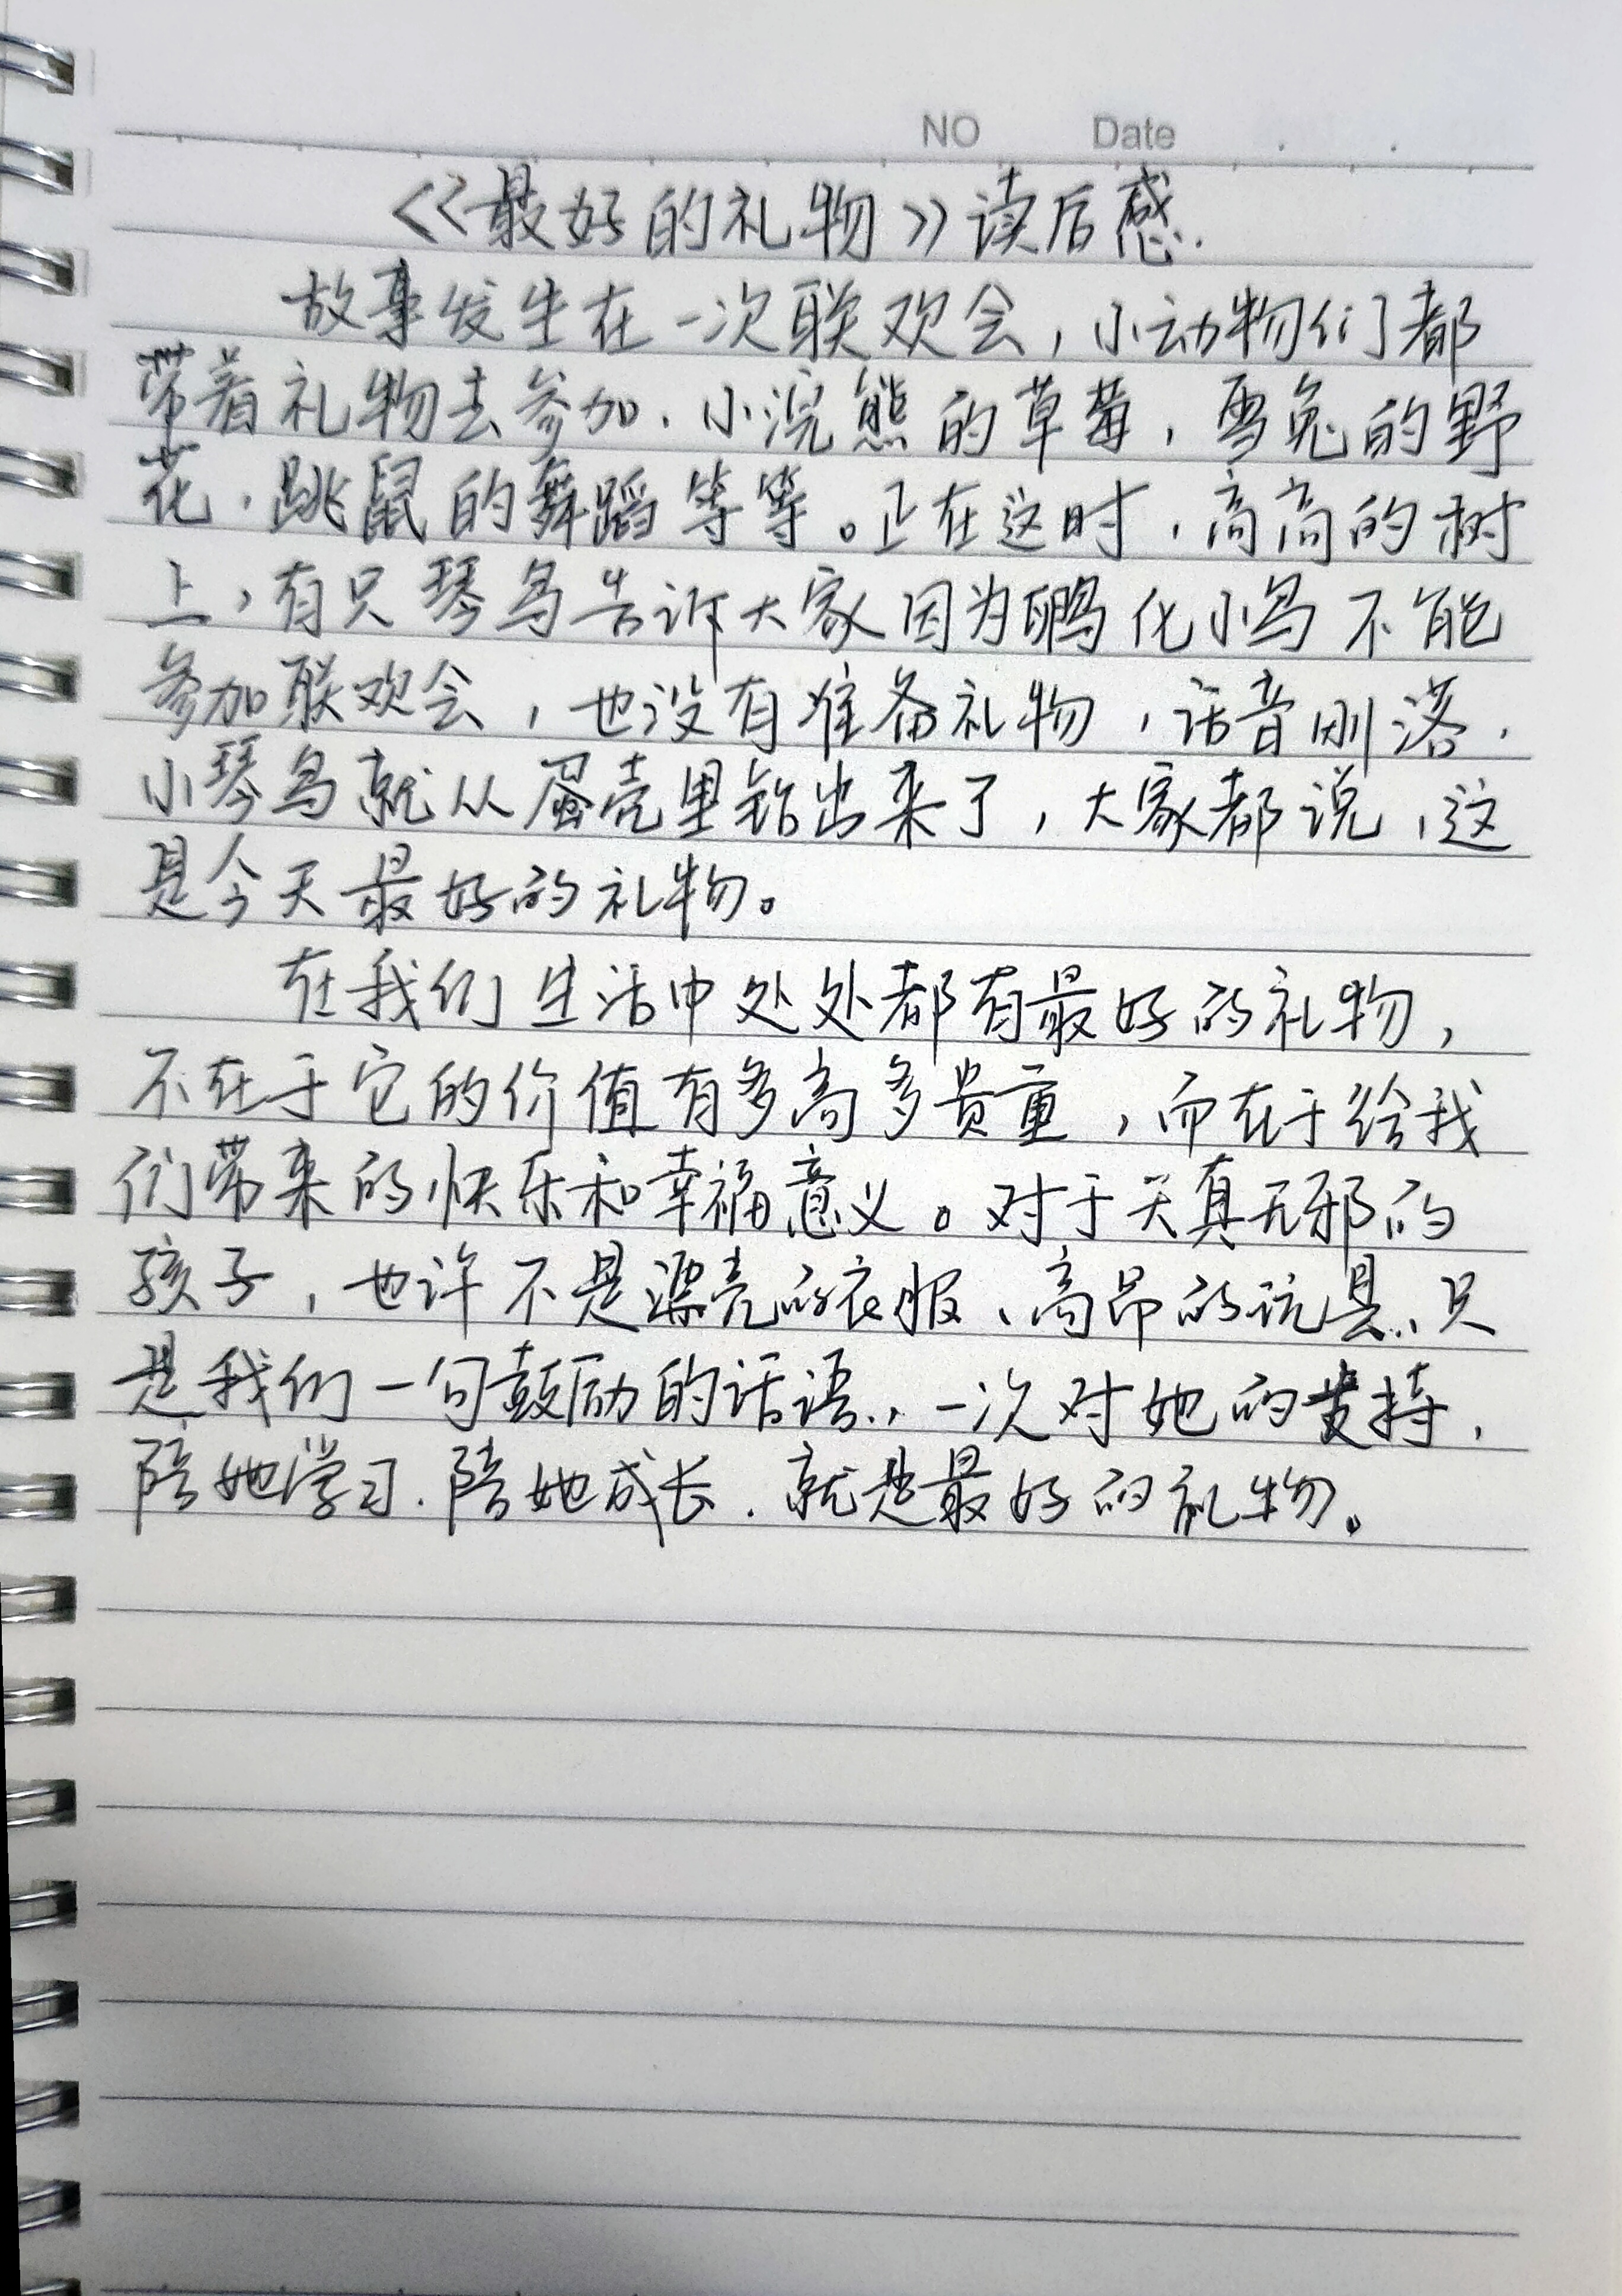 NO Date
《最好的礼物》读后感.
故事发生在一次联欢会，小动物们都
带着礼物去参加.小浣熊的草莓，雪兔的野
花.跳鼠的舞蹈等等。正在这时，高高的树
上，有只琴鸟告诉大家因为孵化小鸟不能
参加联欢会，也没有准备礼物，话音刚落.
小琴鸟就从蛋壳里钻出来了，大家都说，这
是今天最好的礼物。
在我们生活中处处都有最好的礼物，
不在于它的价值有多高多贵重，而在于给我
们带来的快乐和幸福意义。对于天真无邪的
孩子，也许不是漂亮的衣服、高昂的玩具.，只
是我们一句鼓励的话语.，一次对她的支持，
陪她学习.陪她成长.就是最好的礼物。